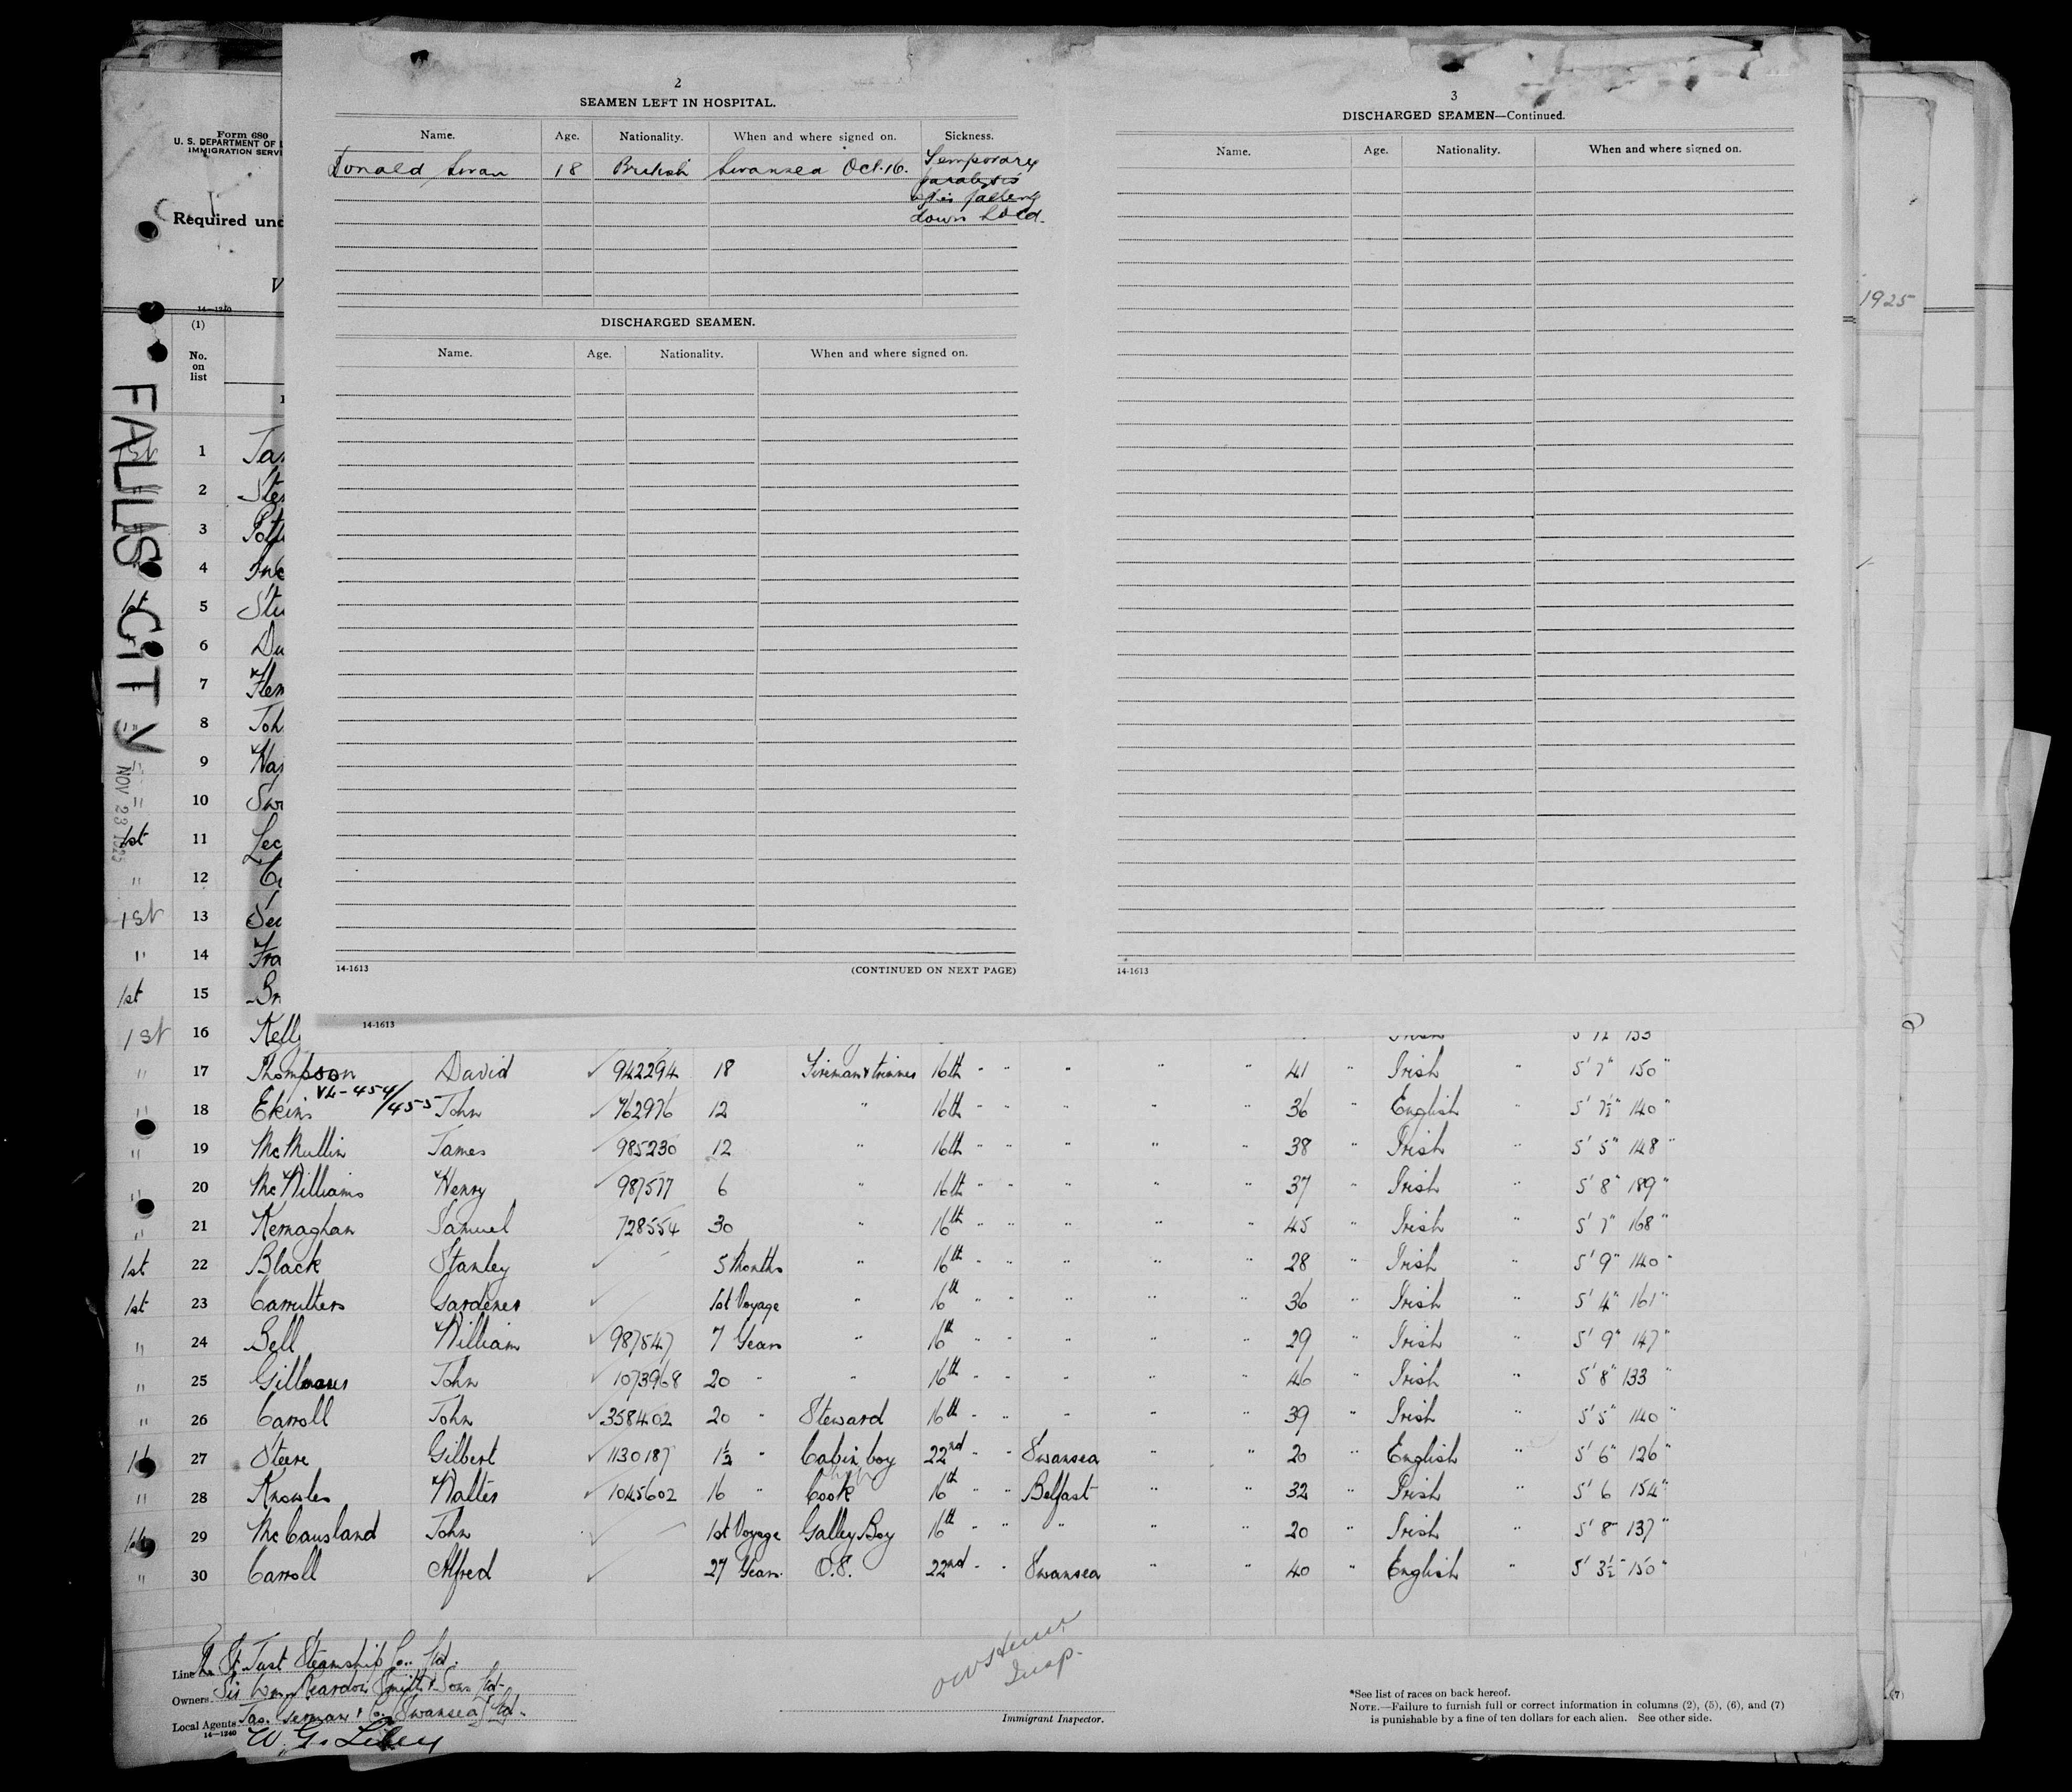 Form 680
U. S. DEPARTMENT OF
IMMIGRATION SERVI
Required und
V
14-1240
(1)
No.
on
list
FALLS CITY
NOV 23 1925
2
SEAMEN LEFT IN HOSPITAL.
Name. Age. Nationality. When and where signed on. Sickness.
Donald Swan 18 British Swansea Oct. 16. Temporary
paralysis
after falling
down hold.
DISCHARGED SEAMEN.
Name. Age. Nationality. When and where signed on.
14-1613 (CONTINUED ON NEXT PAGE)
3
DISCHARGED SEAMEN—Continued.
Name. Age. Nationality. When and where signed on.
14-1613
1925
1st 1 Jam
" 2 Ste
3 Pott
4
1st 5 Stu
6 Du
7 Flem
" 8 Joh
" 9 Har
" 10 Swa
1st 11 Lec
" 12
1st 13
" 14 Fra
1st 15
1st 16 Kelly
14-1613
" 17 Thompson David ✓ 942294 18 Fireman & trimmer 16th " " " " " 41 " Irish " 5' 7" 150 "
VL-454/455
" 18 Ekins John ✓ 762976 12 " 16th " " " " " 36 " English " 5' 7½" 140 "
" 19 McMullin James ✓ 985230 12 " 16th " " " " " 38 " Irish " 5' 5" 148 "
" 20 McWilliams Henry ✓ 987577 6 " 16th " " " " " 37 " Irish " 5' 8" 189 "
" 21 Kernaghan Samuel 728554 30 " 16th " " " " " 45 " Irish " 5' 7" 168 "
1st 22 Black Stanley ✓ 5 Months " 16th " " " " " 28 " Irish " 5' 9" 140 "
1st 23 Carruthers Gardener ✓ 1st Voyage " 16th " " " " " 36 " Irish " 5' 4" 161 "
" 24 Bell William ✓ 987547 7 Years " 16th " " " " " 29 " Irish " 5' 9" 147 "
" 25 John ✓ 1073968 20 " " 16th " " " " " 46 " Irish " 5' 8" 133 "
" 26 Carroll John ✓ 358402 20 " Steward 16th " " " " " 39 " Irish " 5' 5" 140 "
1st 27 Steere Gilbert ✓ 1130187 1½ " Cabin boy 22nd " " Swansea " " 20 " English " 5' 6" 126 "
" 28 Knowles Walter ✓ 1045602 16 " Cook 16th " " Belfast " " 32 " Irish " 5' 6 154 "
1st 29 McCausland John ✓ 1st Voyage Galley Boy 16th " " " " " 20 " Irish " 5' 8" 137 "
" 30 Carroll Alfred ✓ 27 Years O.S. 22nd " " Swansea " " 40 " English " 5' 3½" 150 "
Line St. Just Steamship Co. Ltd.
Owners Sir Wm Reardon Smith & Sons Ltd.
Local Agents Jas. & Co. Swansea Ltd.
14-1240
W. G.
Insp.
Immigrant Inspector.
*See list of races on back hereof.
NOTE.—Failure to furnish full or correct information in columns (2), (5), (6), and (7)
is punishable by a fine of ten dollars for each alien. See other side.
(7)